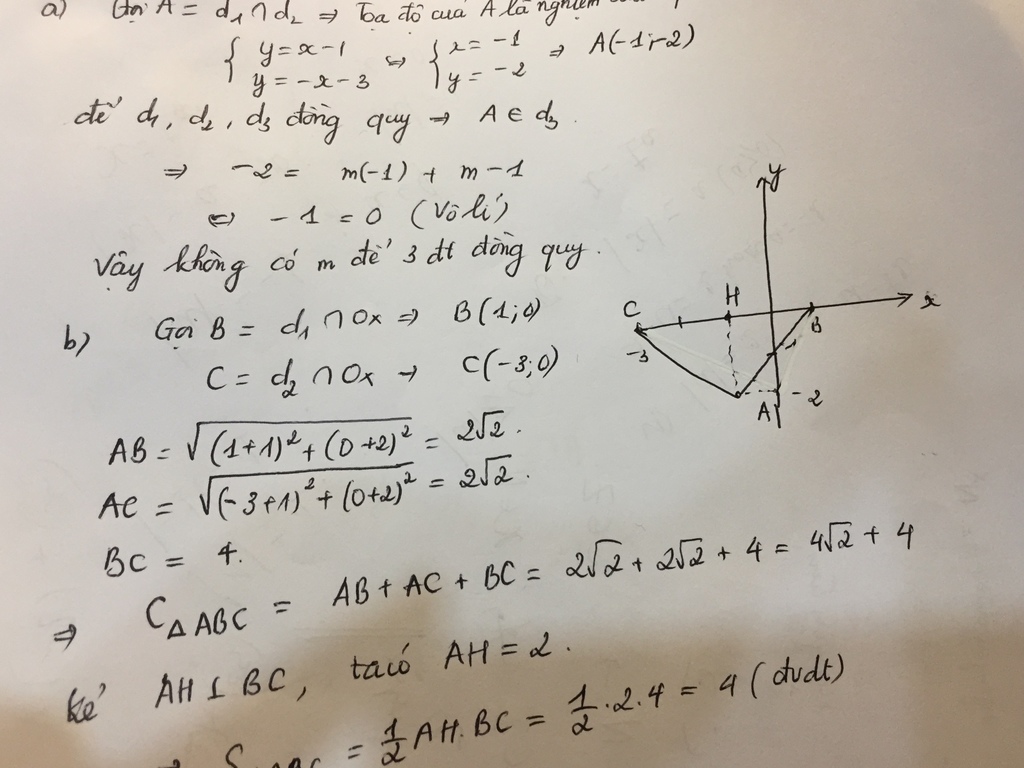 a) Gọi A = d₁ ∩ d₂ ⇒ Tọa độ của A là nghiệm
{ y = x - 1 ⇔ { x = -1 ⇒ A(-1;-2)
{ y = -x - 3 { y = -2
để d₁, d₂, d₃ đồng quy → A ∈ d₃.
⇒ -2 = m(-1) + m - 1
⇔ -1 = 0 (Vô lí)
Vậy không có m để 3 đt đồng quy.
b) Gọi B = d₁ ∩ Ox ⇒ B(1;0)
C = d₂ ∩ Ox → C(-3;0)
AB = √((1+1)² + (0+2)²) = 2√2.
AC = √((-3+1)² + (0+2)²) = 2√2.
BC = 4.
⇒ C△ABC = AB + AC + BC = 2√2 + 2√2 + 4 = 4√2 + 4
kẻ AH ⊥ BC, ta có AH = 2.
= 1/2 AH.BC = 1/2 . 2 . 4 = 4 (đvdt)
y
C H x
B
-3 -1
A -2